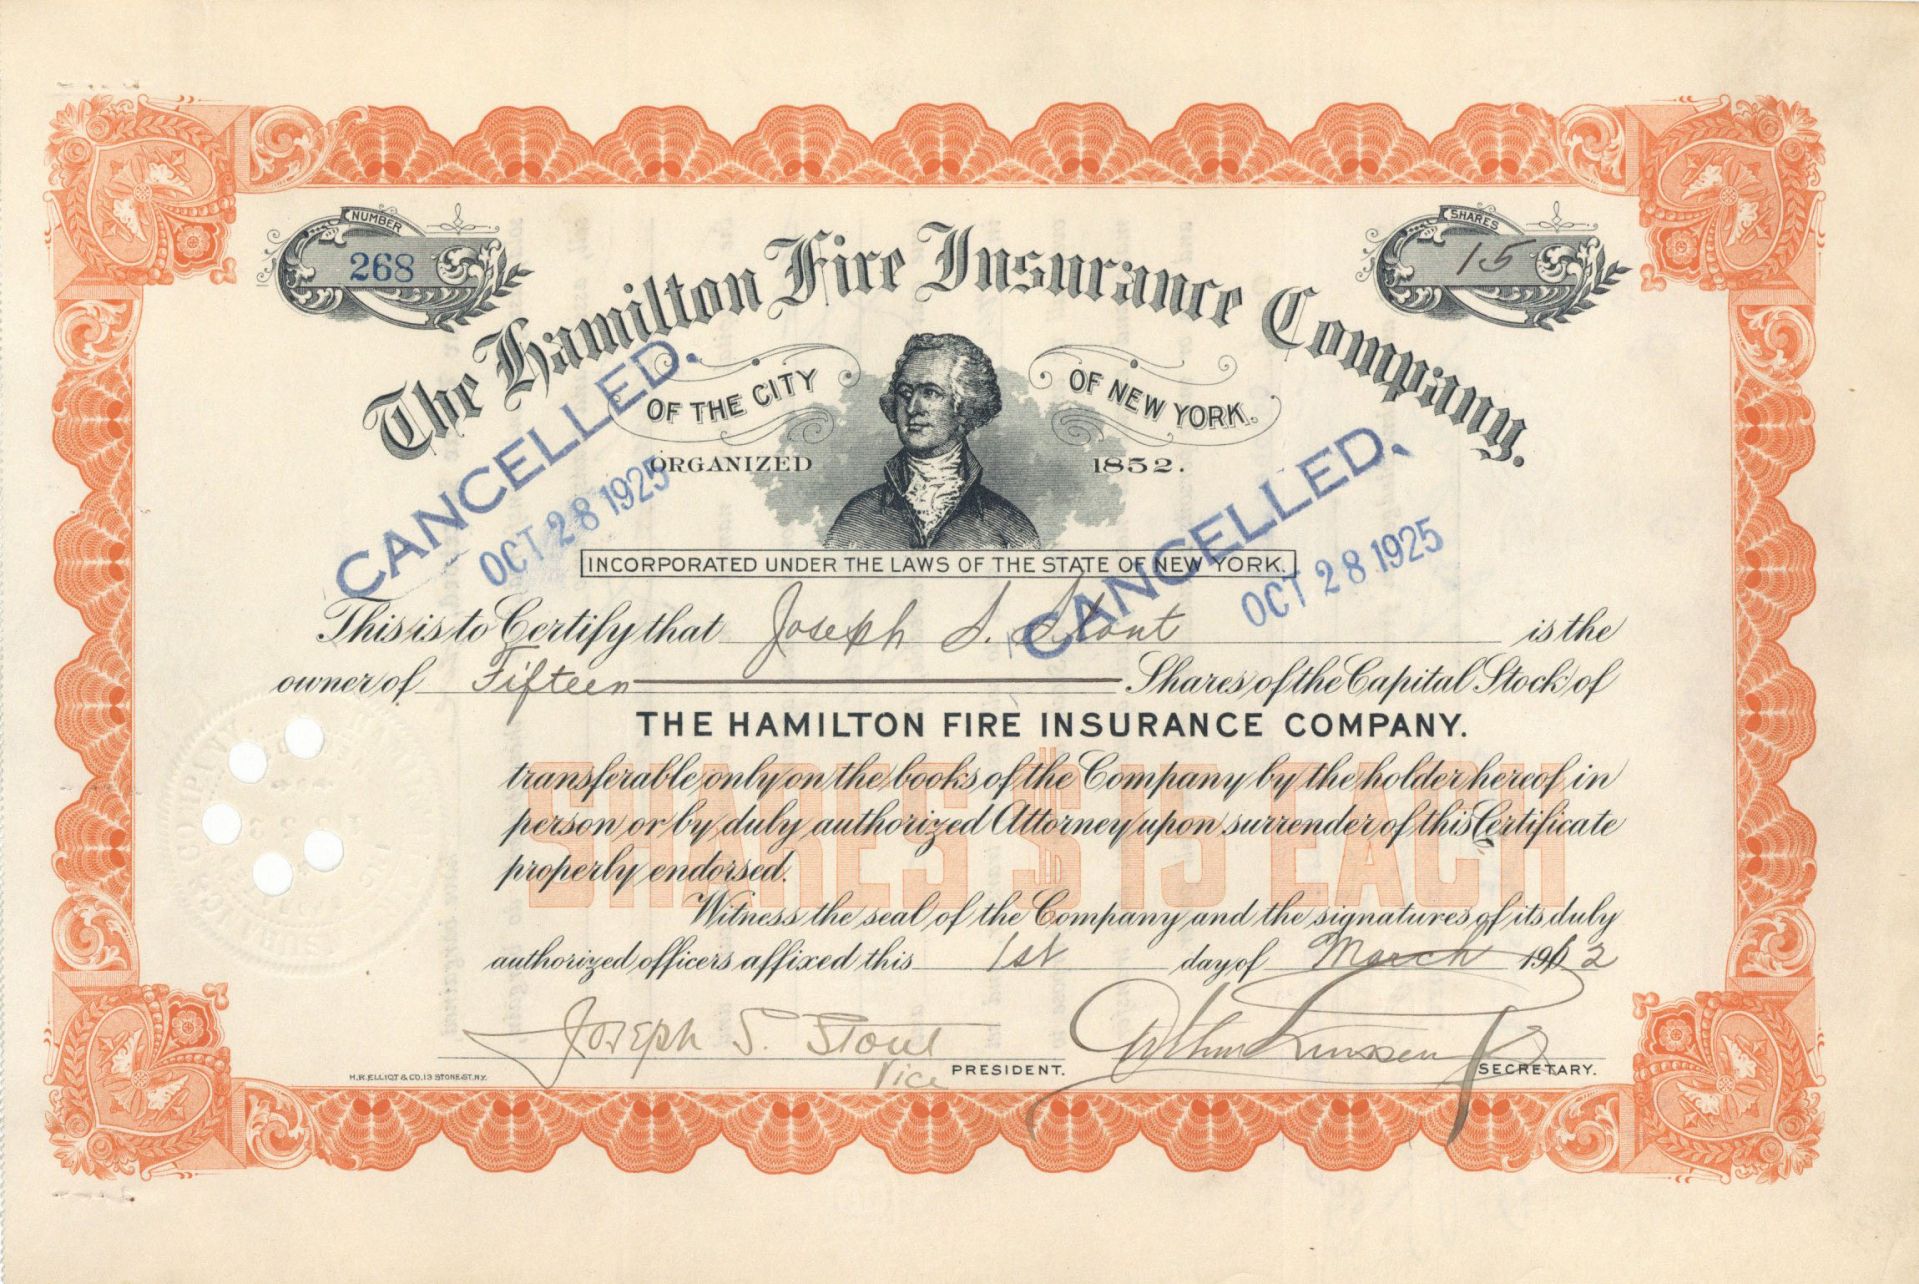 NUMBER
268
SHARES
15
The Hamilton Fire Insurance Company.
OF THE CITY OF NEW YORK.
ORGANIZED 1852.
CANCELLED.
OCT 28 1925
CANCELLED.
OCT 28 1925
INCORPORATED UNDER THE LAWS OF THE STATE OF NEW YORK.
This is to Certify that Joseph S. Stout is the
owner of Fifteen Shares of the Capital Stock of
THE HAMILTON FIRE INSURANCE COMPANY.
transferable only on the books of the Company by the holder hereof in
person or by duly authorized Attorney upon surrender of this Certificate
properly endorsed.
SHARES $15 EACH
Witness the seal of the Company and the signatures of its duly
authorized officers affixed this 1st day of March 1912
Joseph S. Stout
Vice PRESIDENT.
SECRETARY.
H.R. ELLIOT & CO. 13 STONE ST. N.Y.